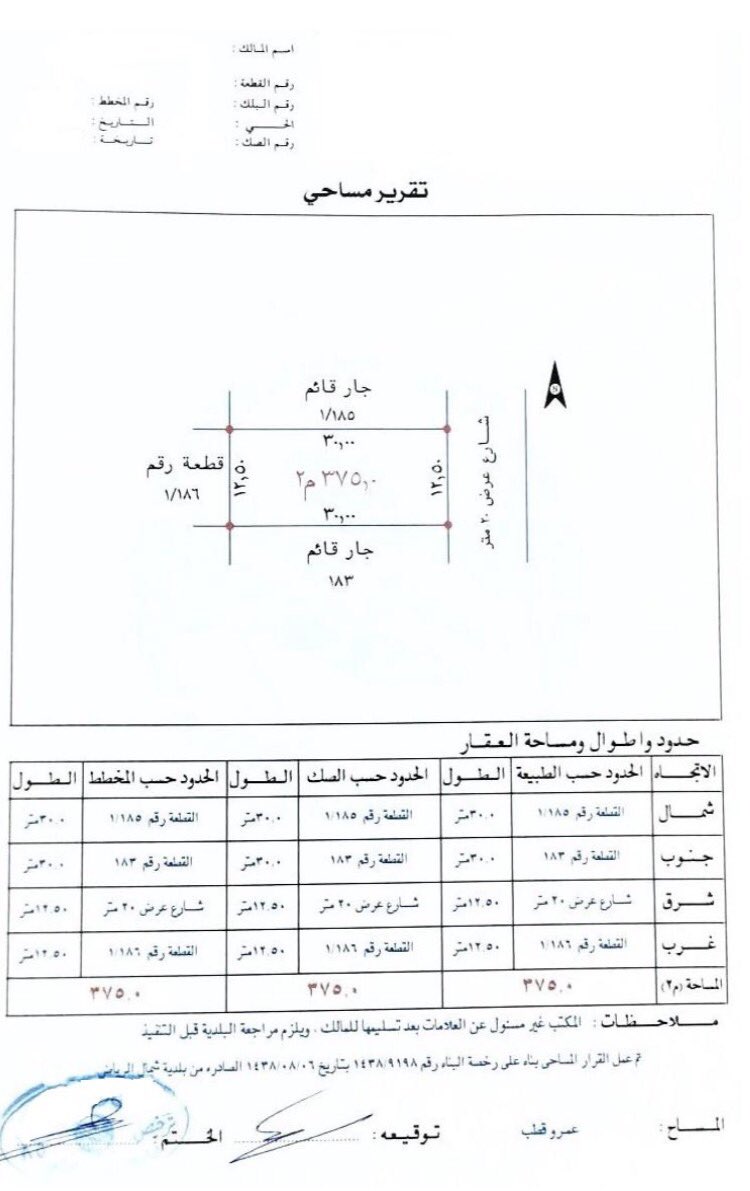 اسم المالك :
رقم القطعة :
رقم البلك : رقم المخطط :
الحـــي : التـاريخ :
رقم الصك : تـاريخة :
تقرير مساحي
جار قائم
١/١٨٥
٣٠,٠٠
قطعة رقم
١/١٨٦
١٢,٥٠
٣٧٥,٠ م٢
١٢,٥٠
شارع عرض ٢٠ متر
S
٣٠,٠٠
جار قائم
١٨٣
حدود واطوال ومساحة العقـار
الاتجـاه الحدود حسب الطبيعة الـطـول الحدود حسب الصك الـطـول الحدود حسب المخطط الـطـول
شمـــال القطعة رقم ١/١٨٥ ٣٠.٠متر القطعة رقم ١/١٨٥ ٣٠.٠متر القطعة رقم ١/١٨٥ ٣٠.٠متر
جنـوب القطعة رقم ١٨٣ ٣٠.٠متر القطعة رقم ١٨٣ ٣٠.٠متر القطعة رقم ١٨٣ ٣٠.٠متر
شــرق شارع عرض ٢٠ متر ١٢.٥٠متر شارع عرض ٢٠ متر ١٢.٥٠متر شارع عرض ٢٠ متر ١٢.٥٠متر
غــرب القطعة رقم ١/١٨٦ ١٢.٥٠متر القطعة رقم ١/١٨٦ ١٢.٥٠متر القطعة رقم ١/١٨٦ ١٢.٥٠متر
المساحة (م٢) ٣٧٥.٠ ٣٧٥.٠ ٣٧٥.٠
مـلاحـــظـات : المكتب غير مسئول عن العلامات بعد تسليمها للمالك ، ويلزم مراجعة البلدية قبل التنفيذ
تم عمل القرار المساحى بناء على رخصة البناء رقم ١٤٣٨/٩١٩٨ بتاريخ ١٤٣٨/٠٨/٠٦ الصادره من بلدية شمال الرياض
المسـاح : عمرو قطب توقيعه : الختـم :
ترخيص